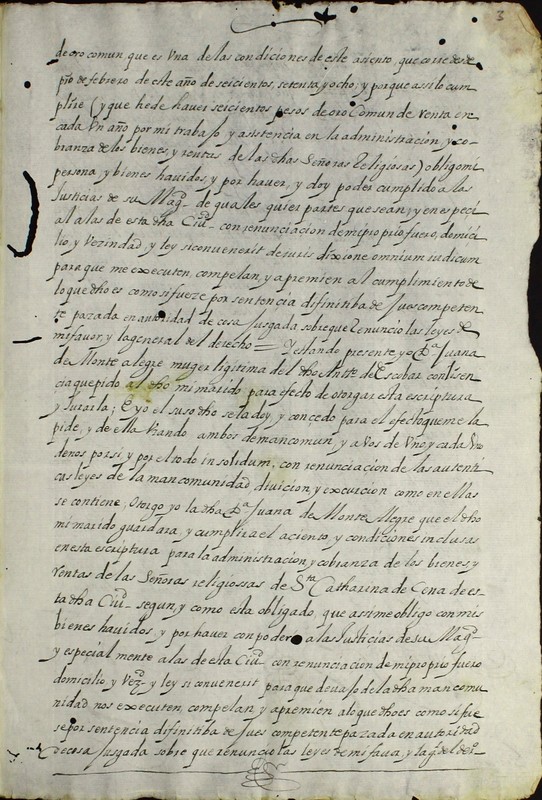 3
de oro comun, que es Una de las condiciones de este asiento, que corre desde
pro de febrero de este año de seicientos, setenta, y ocho; y porque assi lo cum
plire (y que hede haver seicientos pesos de oro Comun de Renta en
cada Un año por mi trabajo y asistencia en la administracion, y co-
branza de los bienes, y rentas de las dhas Señoras Religiosas) obligo mi
persona, y bienes havidos, y por haver, y doy poder cumplido a las
Justicias de su Magd. de quales quier partes que sean, y en especi
al a las de esta dha Ciud. con renunciacion de mi proprio fuero, domici
lio, y Vezindad, y ley si convenerit de iuris dixione omnium iudicum
para que me executen, compelan, y apremien al cumplimiento de
lo que dho es como si fueze por sentencia difinitiba de Jues competen
te pazada en autoridad de cosa Jusgada sobre que Renuncio las leyes de
mi favor, y la general del derecho = Y estando presente, yo Da. Juana
de Monte alegre muger ligitima del dho de Escobar con lisen
cia que pido al dho mi marido para efecto de otorgar esta escriptura
y Jurarla; E yo el suso dho se la doy, y concedo para el efecto que me la
pide, y de ella Vzando ambos de mancomun, y a vos de Vno, y cada Vno
de nos por si, y por el todo in solidum, con renunciacion de las autenti
cas leyes de la mancomunidad diuicion, y excurcion como en ellas
se contiene, Otorgo yo la dha Da. Juana de Monte Alegre que el dho
mi marido guardara, y cumplira el aciento, y condiciones inclusas
en esta escriptura para la administracion, y cobranza de los bienes y
Rentas de las Señoras religiossas de Sta Catharina de Cena de es-
ta dha Ciud. segun, y como esta obligado, que assi me obligo con mis
bienes havidos, y por haver con poder a las Justicias de su Magd.
y especial mente a las de esta Ciud. con renunciacion de mi proprio fuero
domicilio, y Vezd. y ley si convenerit para que devajo de la dha mancomu
nidad nos executen, compelan, y apremien a lo que dho es como si fue
se por sentencia difinitiba de Jues competente pazada en autoridad
de cosa Jusgada sobre que renuncio las leyes de mi favor, y la gl. del der.